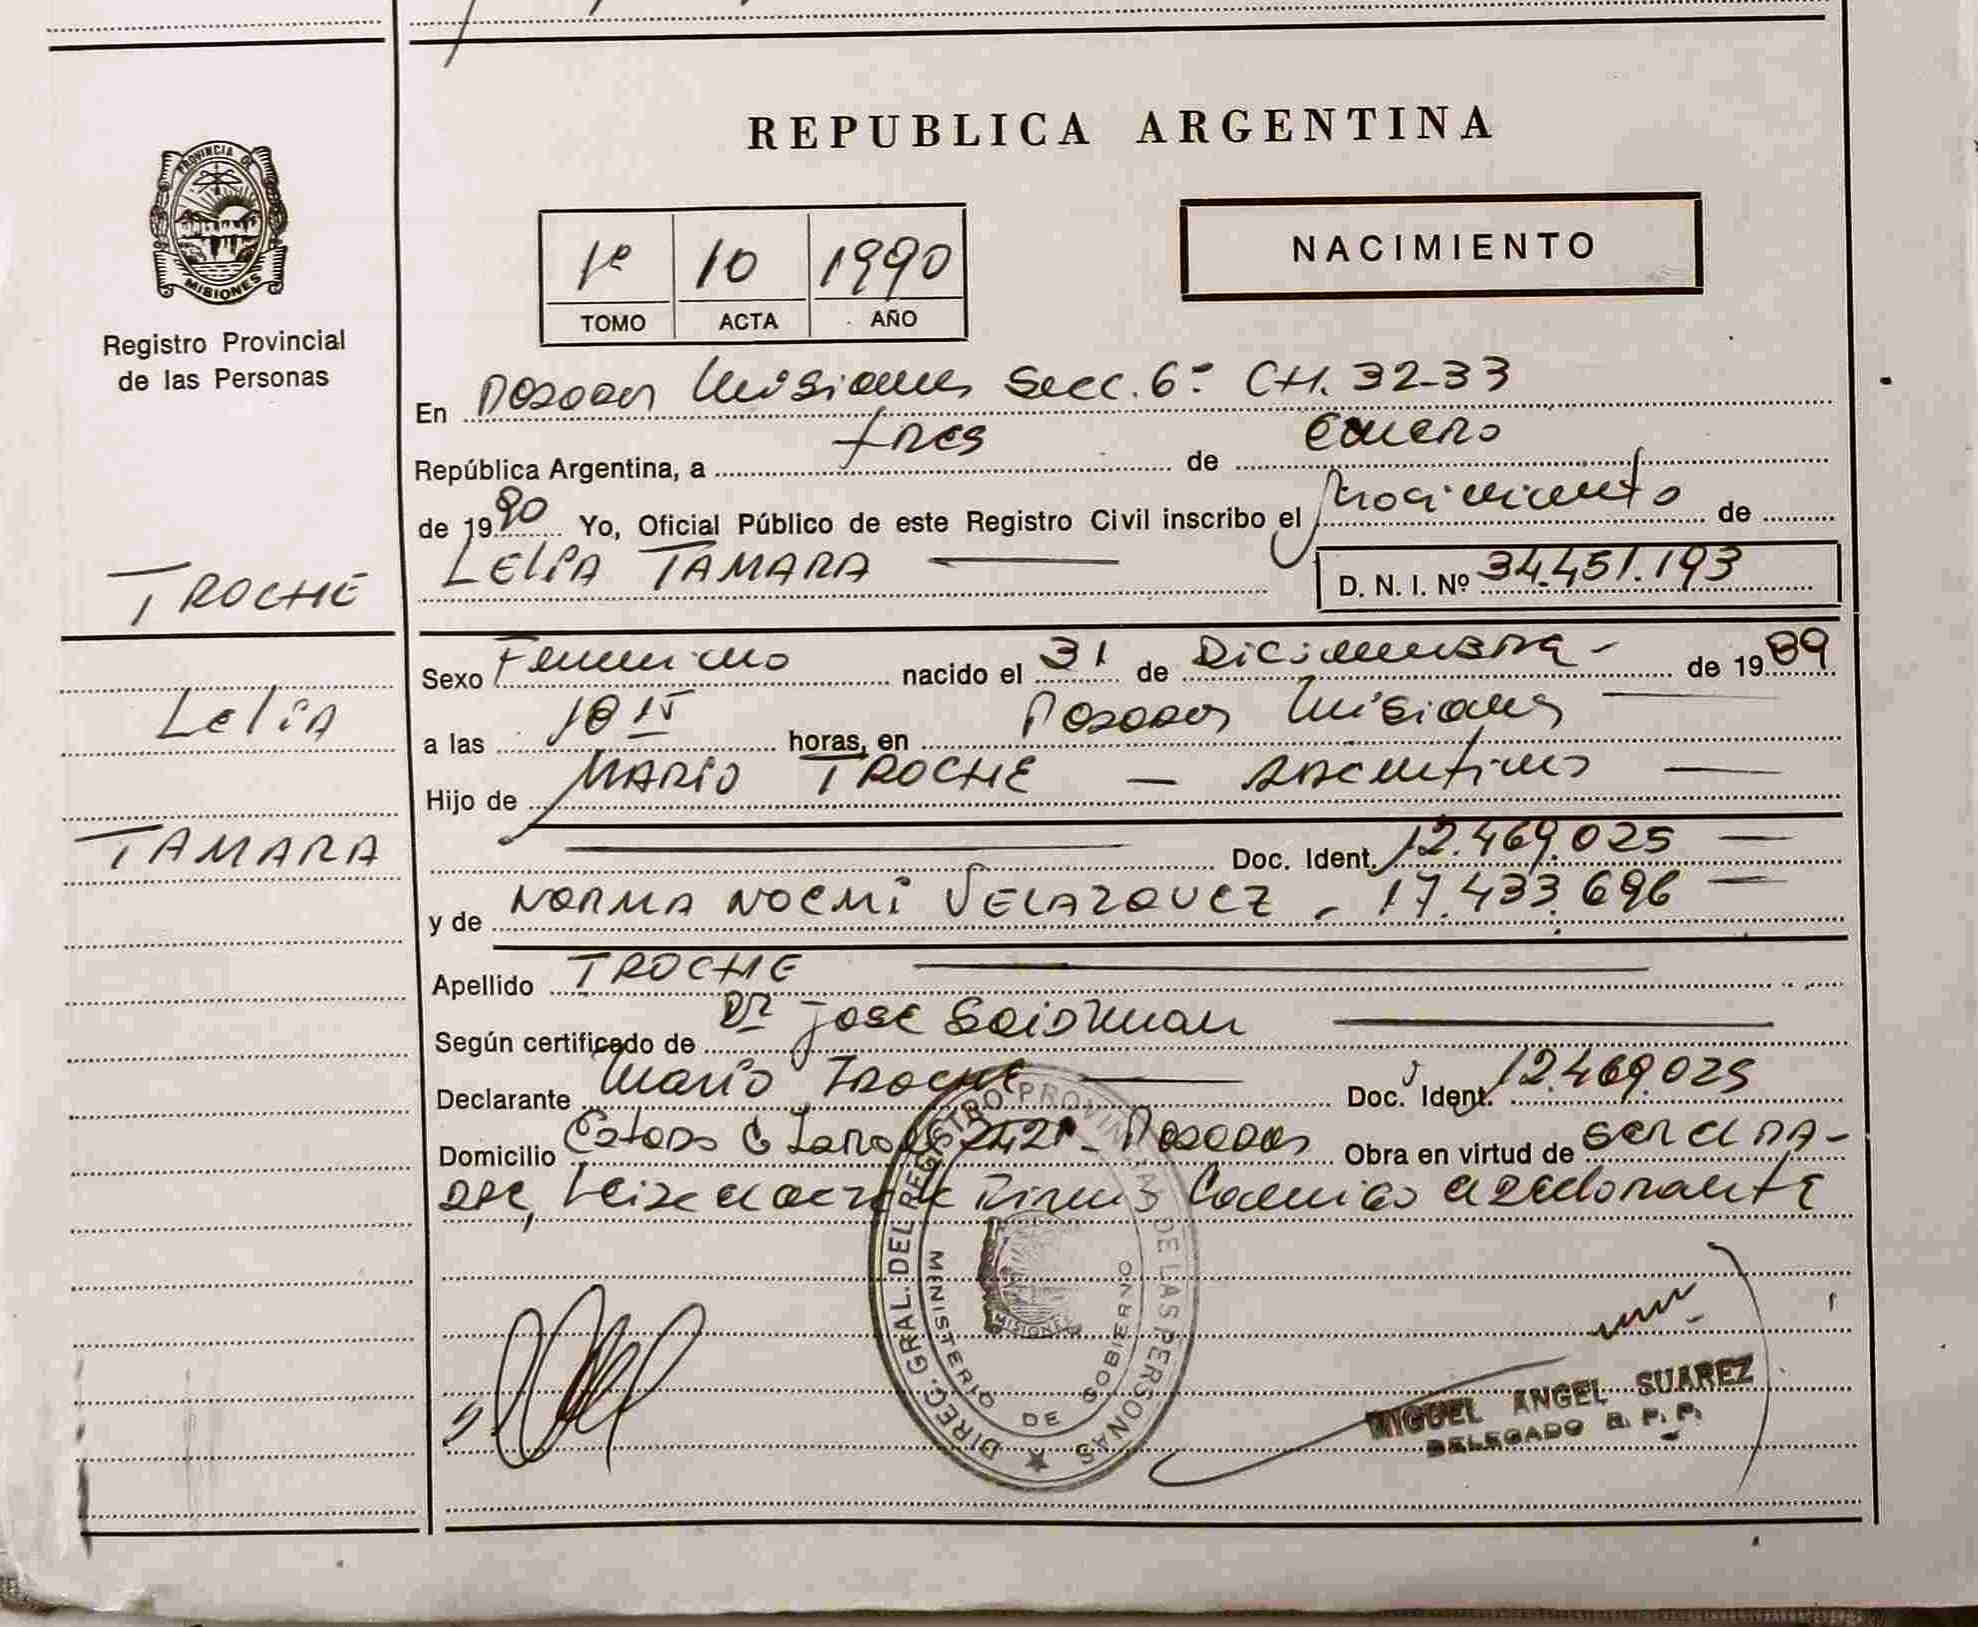 REPUBLICA ARGENTINA
PROVINCIA DE
MISIONES
Registro Provincial
de las Personas
1º 10 1990
TOMO ACTA AÑO
NACIMIENTO
En Posadas Misiones Secc. 6º CH. 32-33
República Argentina, a tres de Enero
de 1990 Yo, Oficial Público de este Registro Civil inscribo el Nacimiento de
LELIA TAMARA D. N. I. Nº 34.451.193
TROCHE
Lelia
TAMARA
Sexo Femenino nacido el 31 de Diciembre - de 1989
a las horas, en Posadas Misiones
Hijo de MARIO TROCHE — Argentino
Doc. Ident. 12.469.025
y de NORMA NOEMI VELAZQUEZ - 17.433.696
Apellido TROCHE
Según certificado de Dr Jose Seidman
Declarante Mario Troche Doc. Ident. 12.469.025
Domicilio Posadas Obra en virtud de ser el pa-
dre, Leida el acta firma conmigo el declarante
DIREC. GRAL. DEL REGISTRO PROVINCIAL DE LAS PERSONAS
MINISTERIO DE GOBIERNO
MISIONES
MIGUEL ANGEL SUAREZ
DELEGADO R. P. P.